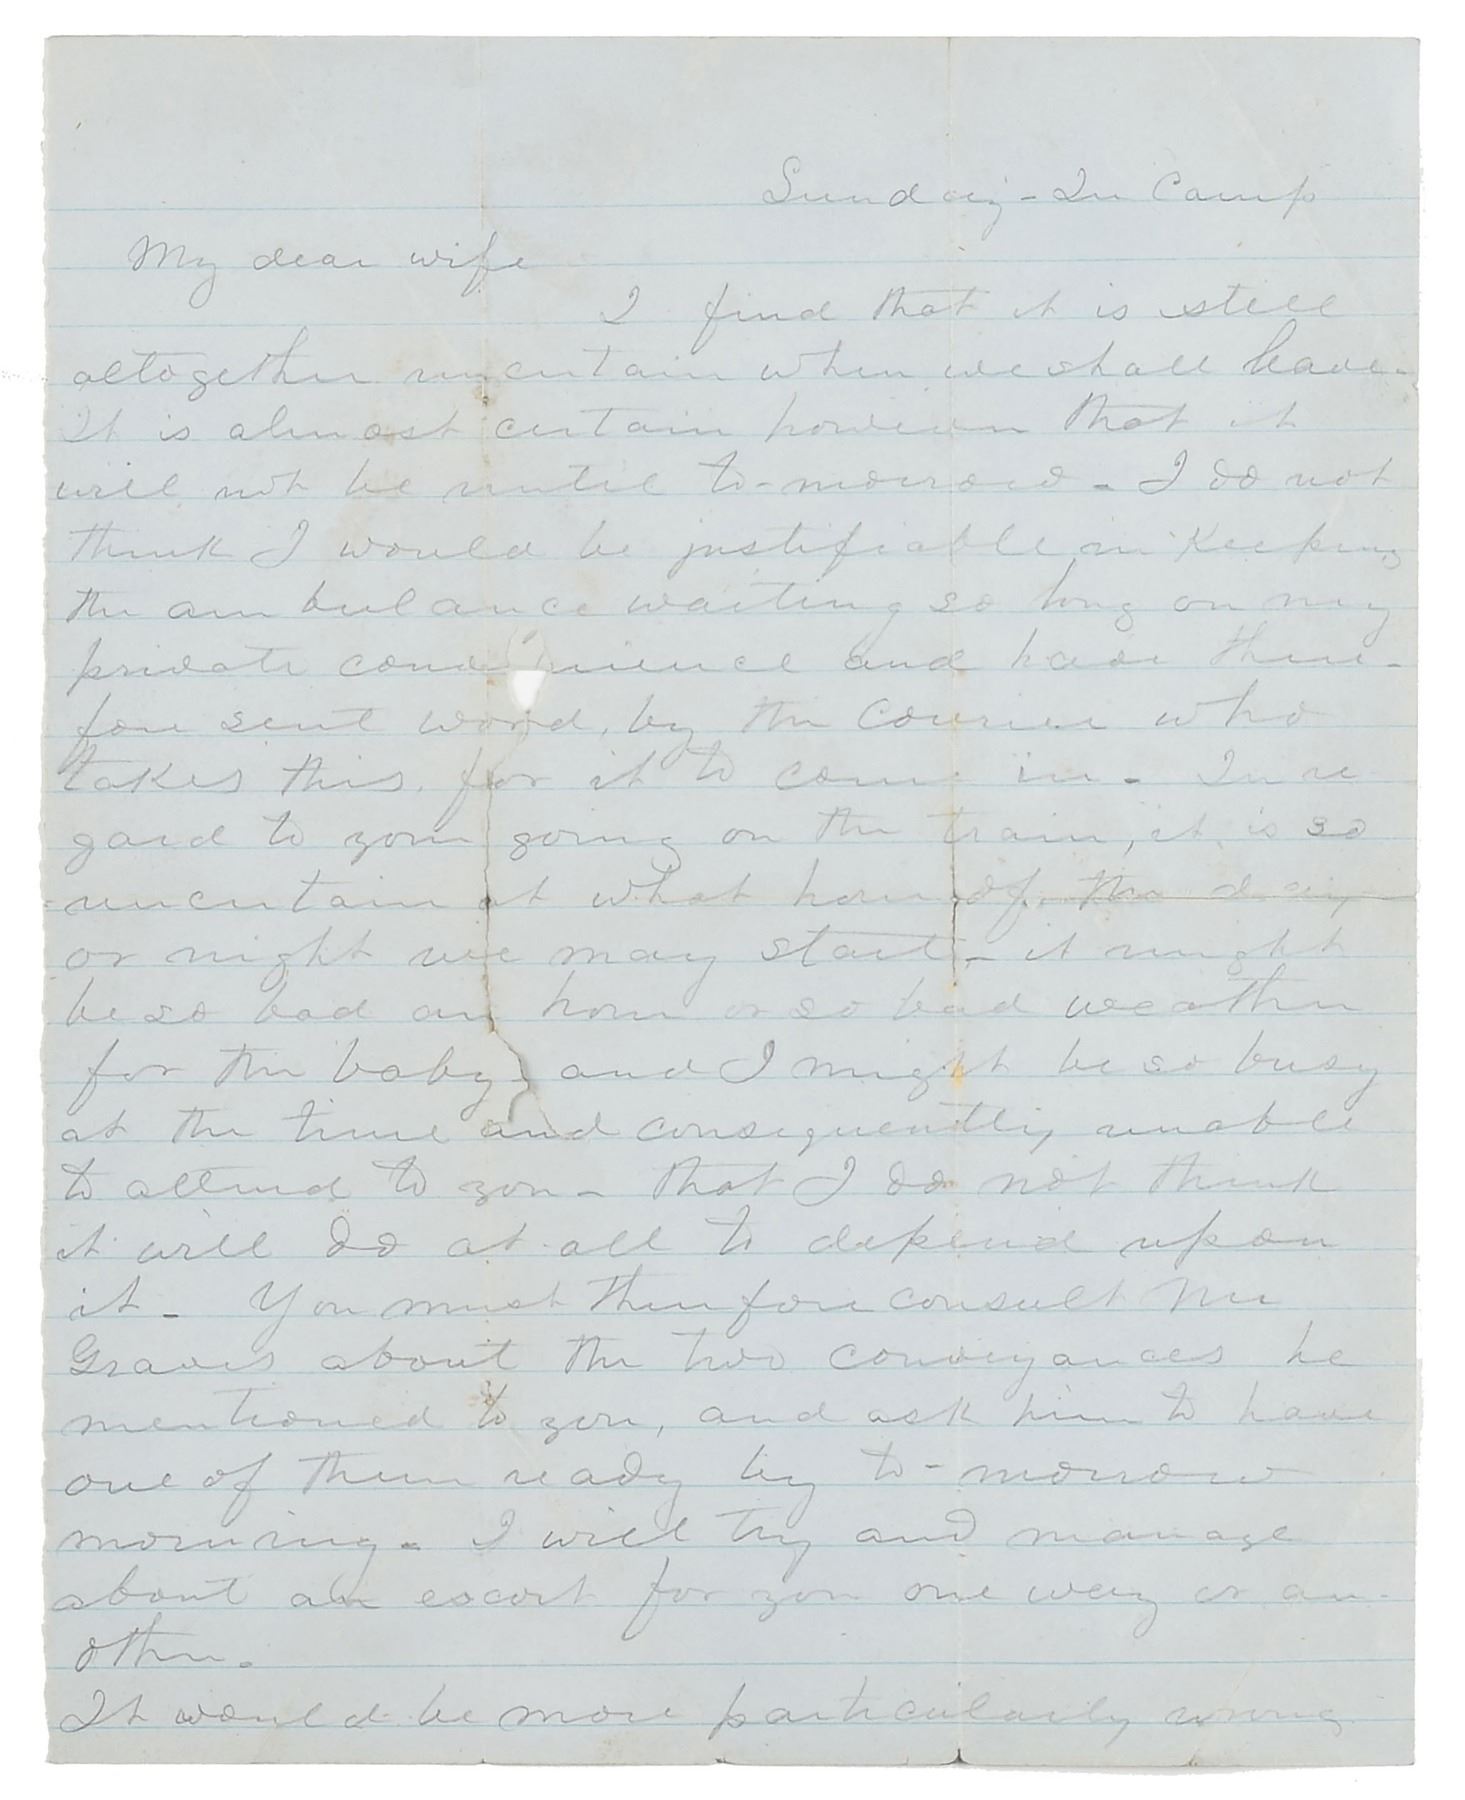 Sunday - In Camp
My dear wife
I find that it is still
altogether uncertain when we shall leave -
It is almost certain however that it
will not be until to-morrow - I do not
think I would be justifiable in Keeping
the ambulance waiting so long on my
private convenience and have there-
fore sent word, by the Courier who
takes this, for it to come in - In re
gard to your going on the train, it is so
uncertain at what hour of the day
or night we may start - it might
be so bad an hour or so bad weather
for the baby, and I might be so busy
at the time and consequently unable
to attend to you - that I do not think
it will do at all to depend upon
it - You must therefore consult Mr
Graves about the two conveyances he
mentioned to you, and ask him to have
one of them ready by to-morrow
morning - I will try and manage
about an escort for you one way or an-
other.
It would be more particularly wrong